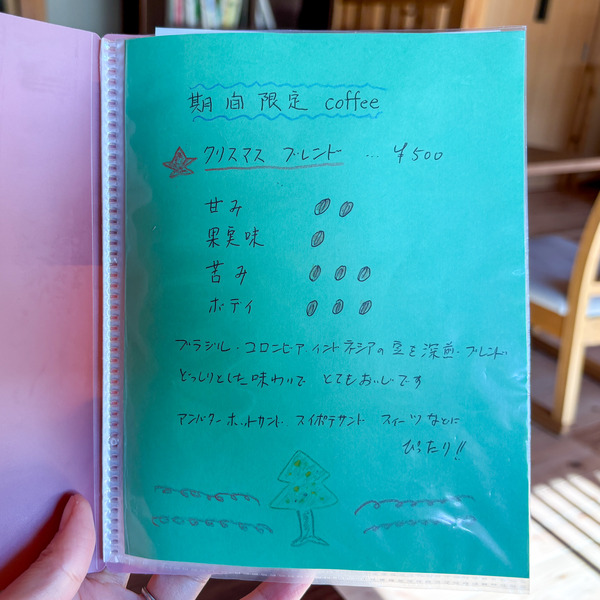 期間限定 coffee
クリスマス ブレンド … ¥500
甘み
果実味
苦み
ボディ
ブラジル・コロンビア インドネシアの豆を深煎・ブレンド
どっしりとした味わいで とてもおいしいです
アンバターホットサンド スイポテサンド スイーツなどに
ぴったり!!